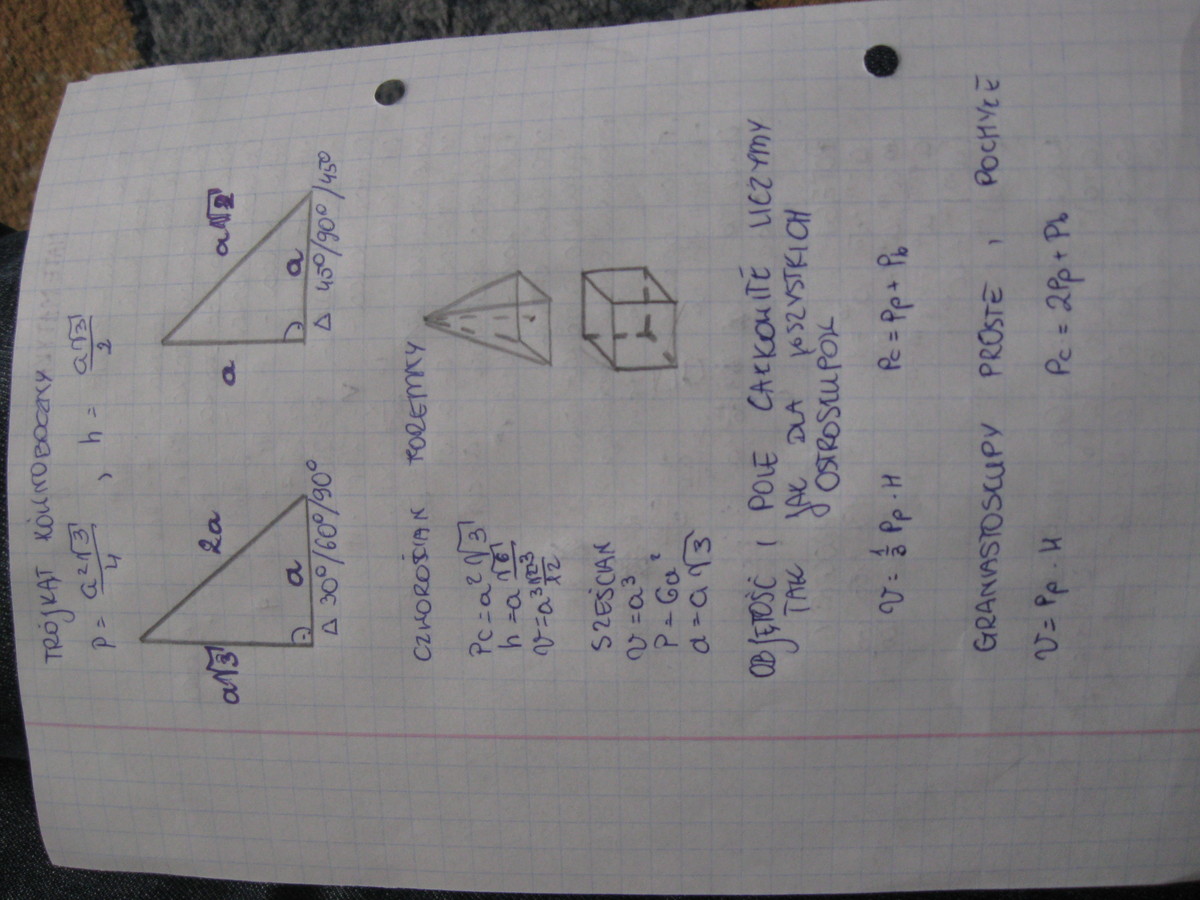 TRÓJKĄT RÓWNOBOCZNY
P = a²√3/4 , h = a√3/2
a√3 2a a
△ 30°/60°/90°
a a√2 a
△ 45°/90°/45°
CZWOROŚCIAN FOREMNY
Pc = a²√3
h = a√6
V = a³
SZEŚCIAN
V = a³
P = 6a²
a = a√3
OBJĘTOŚĆ I POLE CAŁKOWITE LICZYMY
TAK JAK DLA WSZYSTKICH
OSTROSŁUPÓW
V = 1/3 Pp · H Pc = Pp + Pb
GRANIASTOSŁUPY PROSTE I POCHYŁE
V = Pp · H Pc = 2Pp + Pb